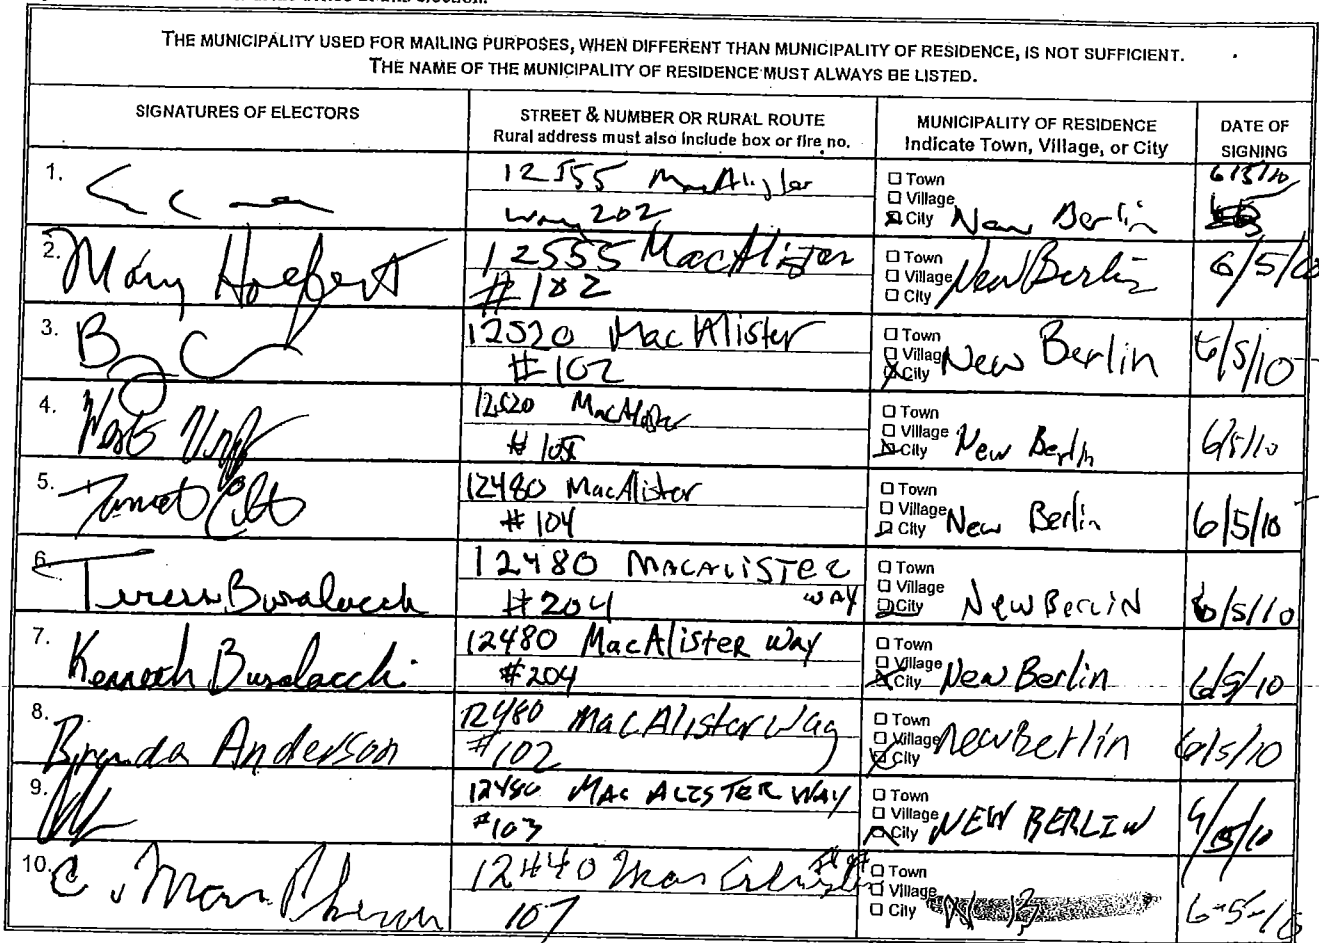 THE MUNICIPALITY USED FOR MAILING PURPOSES, WHEN DIFFERENT THAN MUNICIPALITY OF RESIDENCE, IS NOT SUFFICIENT.
THE NAME OF THE MUNICIPALITY OF RESIDENCE MUST ALWAYS BE LISTED.
SIGNATURES OF ELECTORS
STREET & NUMBER OR RURAL ROUTE
Rural address must also include box or fire no.
MUNICIPALITY OF RESIDENCE
Indicate Town, Village, or City
DATE OF
SIGNING
1.
12555
Way 202
Town
Village
City New Berlin
6/5/10
2. Mary
12555 MacAlister
#102
Town
Village
City New Berlin
6/5/10
3.
12520 MacAlister
#102
Town
Village
City New Berlin
6/5/10
4.
12520 MacAlister
Town
Village
City New Berlin
6/5/10
5.
12480 MacAlister
#104
Town
Village
City New Berlin
6/5/10
6. Busalacchi
12480 MACALISTER
WAY
#204
Town
Village
City New Berlin
6/5/10
7. Kenneth Busalacchi
12480 MacAlister Way
#204
Town
Village
City New Berlin
6/5/10
8. Brenda Anderson
12480 MacAlister Way
#102
Town
Village
City New Berlin
6/5/10
9.
12480 MAC ALISTER WAY
#103
Town
Village
City NEW BERLIN
10. C.
12440
107
Town
Village
City N B
6-5-10